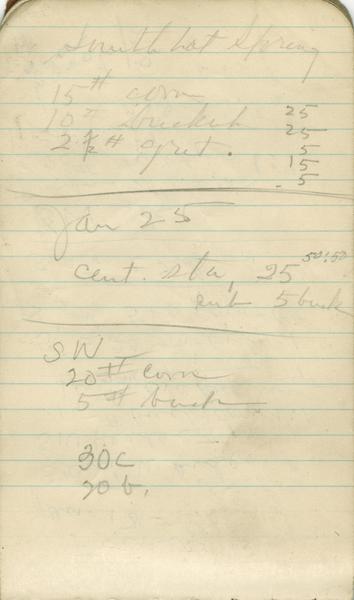 South hot Spring
15# corn
10# buckwh 25
25
2 ½# grit. 5
15
5
Jan 25
cent. sta, 25 50:50
5 buck
SW
20# corn
5# buck
30c
20 b.